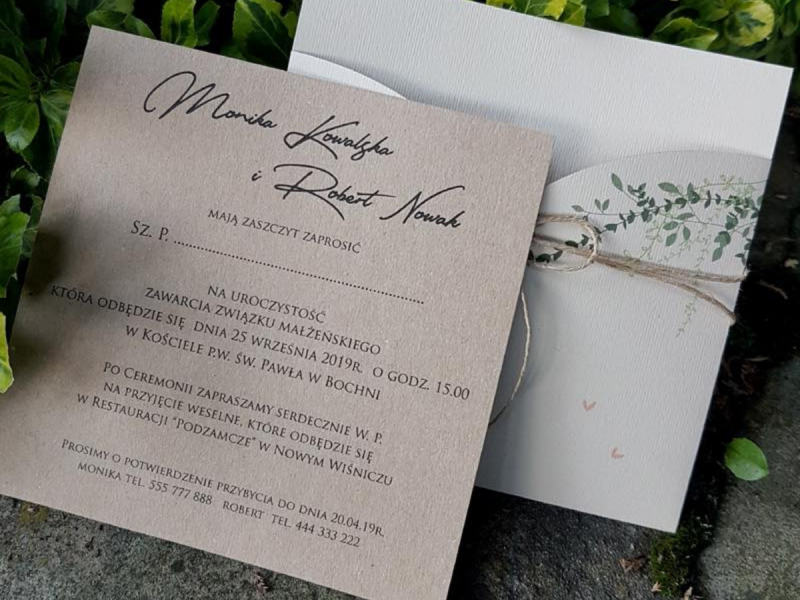 Monika Kowalska
i Robert Nowak
MAJĄ ZASZCZYT ZAPROSIĆ
SZ. P. ..........................................................
NA UROCZYSTOŚĆ
ZAWARCIA ZWIĄZKU MAŁŻEŃSKIEGO
KTÓRA ODBĘDZIE SIĘ DNIA 25 WRZEŚNIA 2019R. O GODZ. 15.00
W KOŚCIELE P.W. ŚW. PAWŁA W BOCHNI
PO CEREMONII ZAPRASZAMY SERDECZNIE W. P.
NA PRZYJĘCIE WESELNE, KTÓRE ODBĘDZIE SIĘ
W RESTAURACJI "PODZAMCZE" W NOWYM WIŚNICZU
PROSIMY O POTWIERDZENIE PRZYBYCIA DO DNIA 20.04.19R.
MONIKA TEL. 555 777 888 ROBERT TEL. 444 333 222